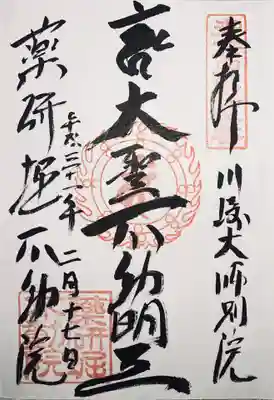 奉拝 川崎大師別院
大聖不動明王
平成三十一年 二月十七日
薬研堀不動院